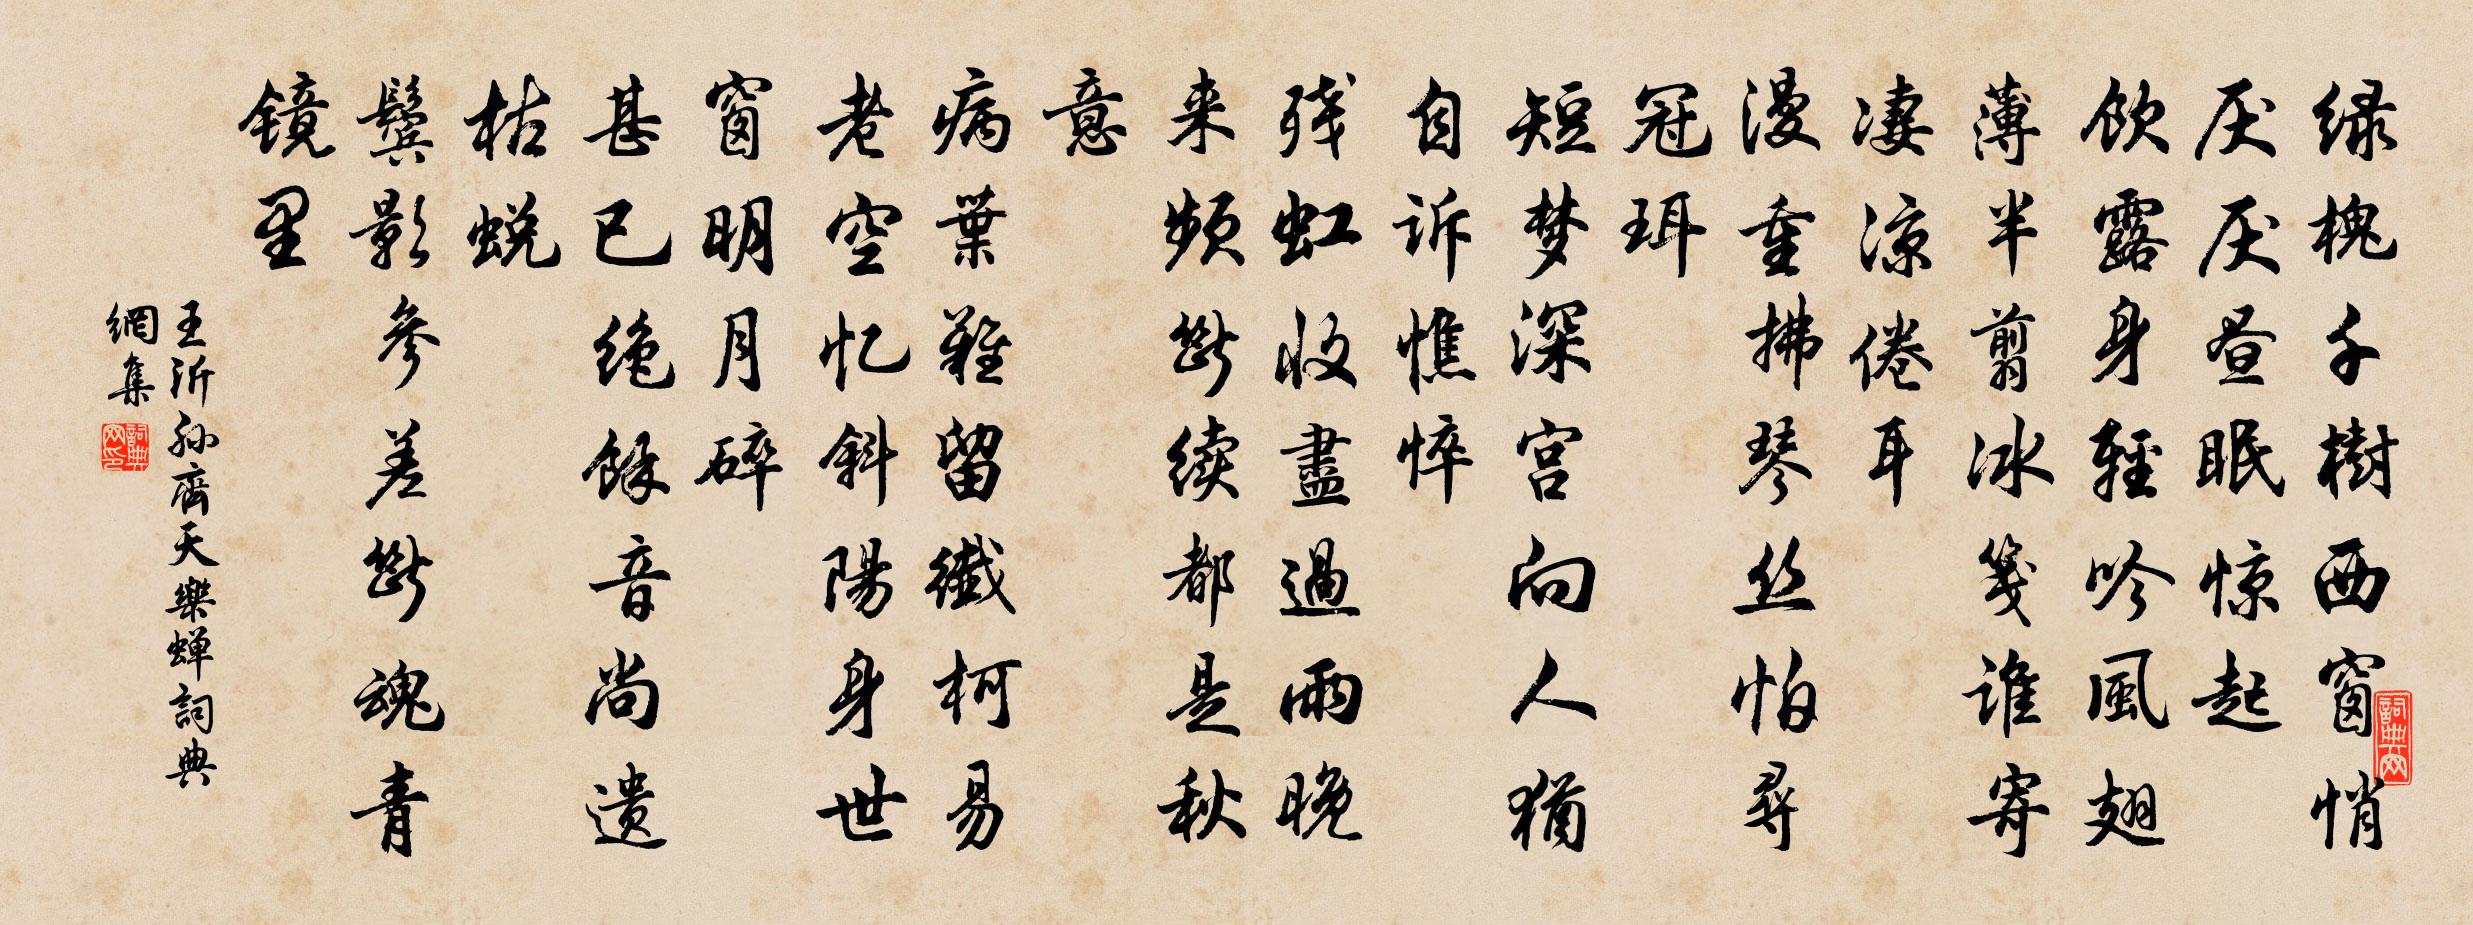 绿槐千樹西窗悄
厌厌昼眠惊起
饮露身輕吟風翅
薄半翦冰笺谁寄
凄凉倦耳
漫重拂琴丝怕尋
冠珥
短梦深宫向人猶
自诉憔悴
残虹收盡過雨晚
来频断续都是秋
意
病葉難留纖柯易
老空忆斜陽身世
窗明月碎
甚已绝餘音尚遗
枯蜕
鬓影参差断魂青
镜里
王沂孙齊天樂蝉詞典
網集
詞典网
詞典网印